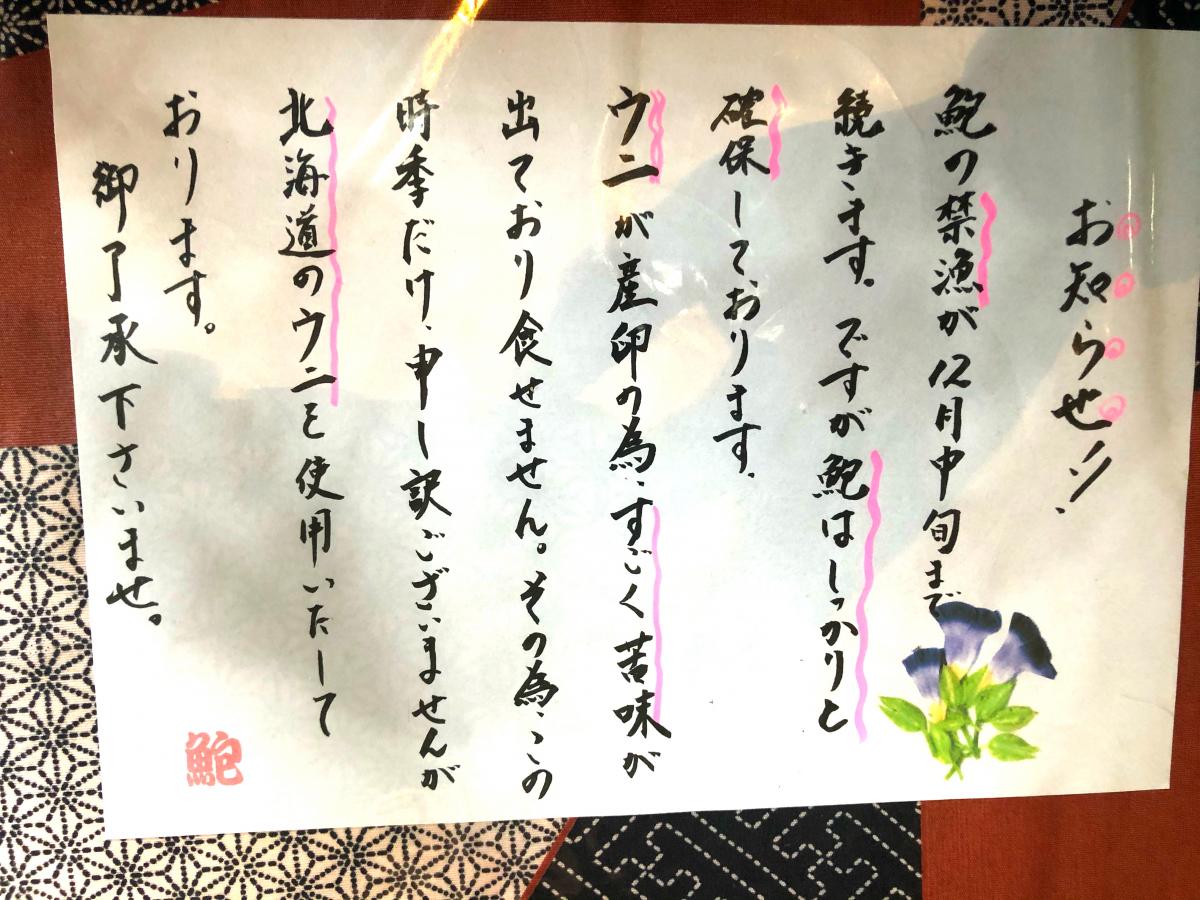 お知らせ!!
鮑の禁漁が12月中旬まで
続きます。ですが鮑はしっかりと
確保しております。
ウニが産卵の為、すごく苦味が
出ており食せません。その為、この
時季だけ、申し訳ございませんが
北海道のウニを使用いたして
おります。
御了承下さいませ。
鮑